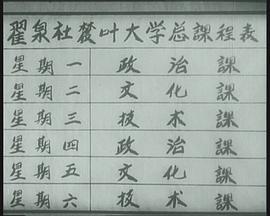 翟泉社农叶大学总課程表
星期一 政治課
星期二 文化課
星期三 技术課
星期四 政治課
星期五 文化課
星期六 技术課